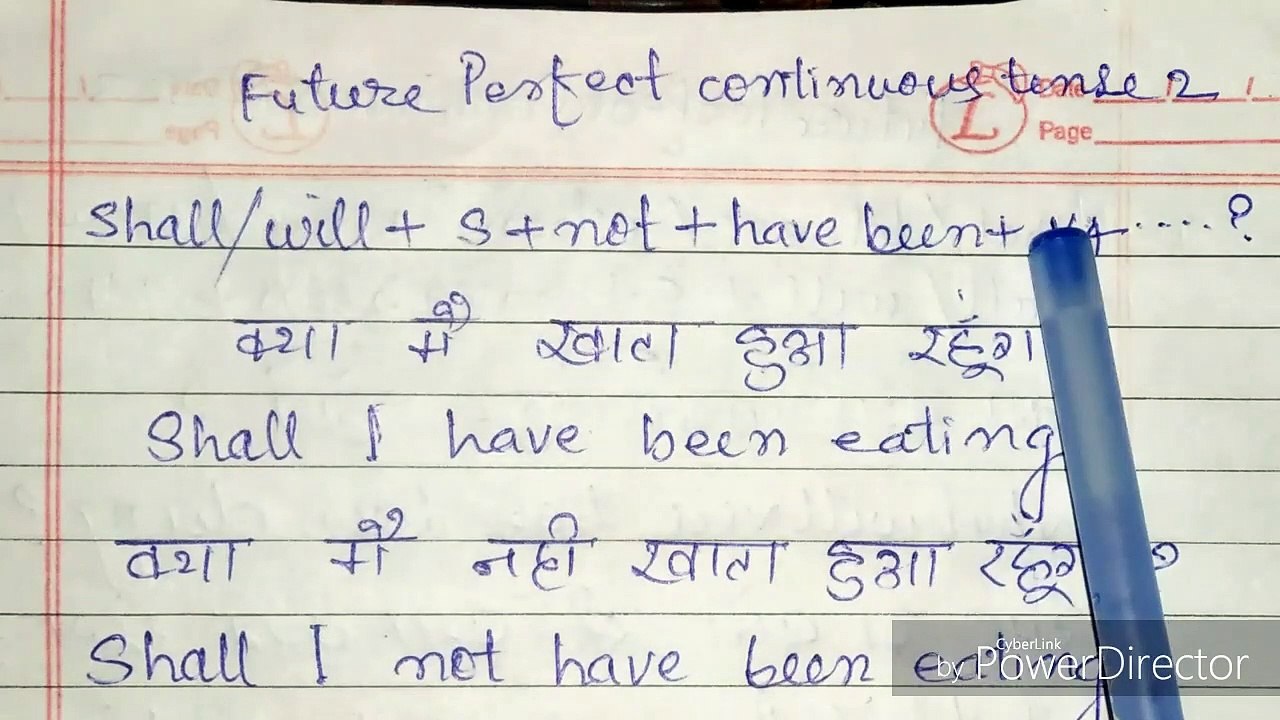 Future Perfect continuous tense 2
Page
Shall/will + S + not + have been + ....?
क्या मैं खाता हुआ रहूँगा
Shall I have been eating
क्या मैं नही खाता हुआ ?
Shall I not have been eating
CyberLink
by PowerDirector